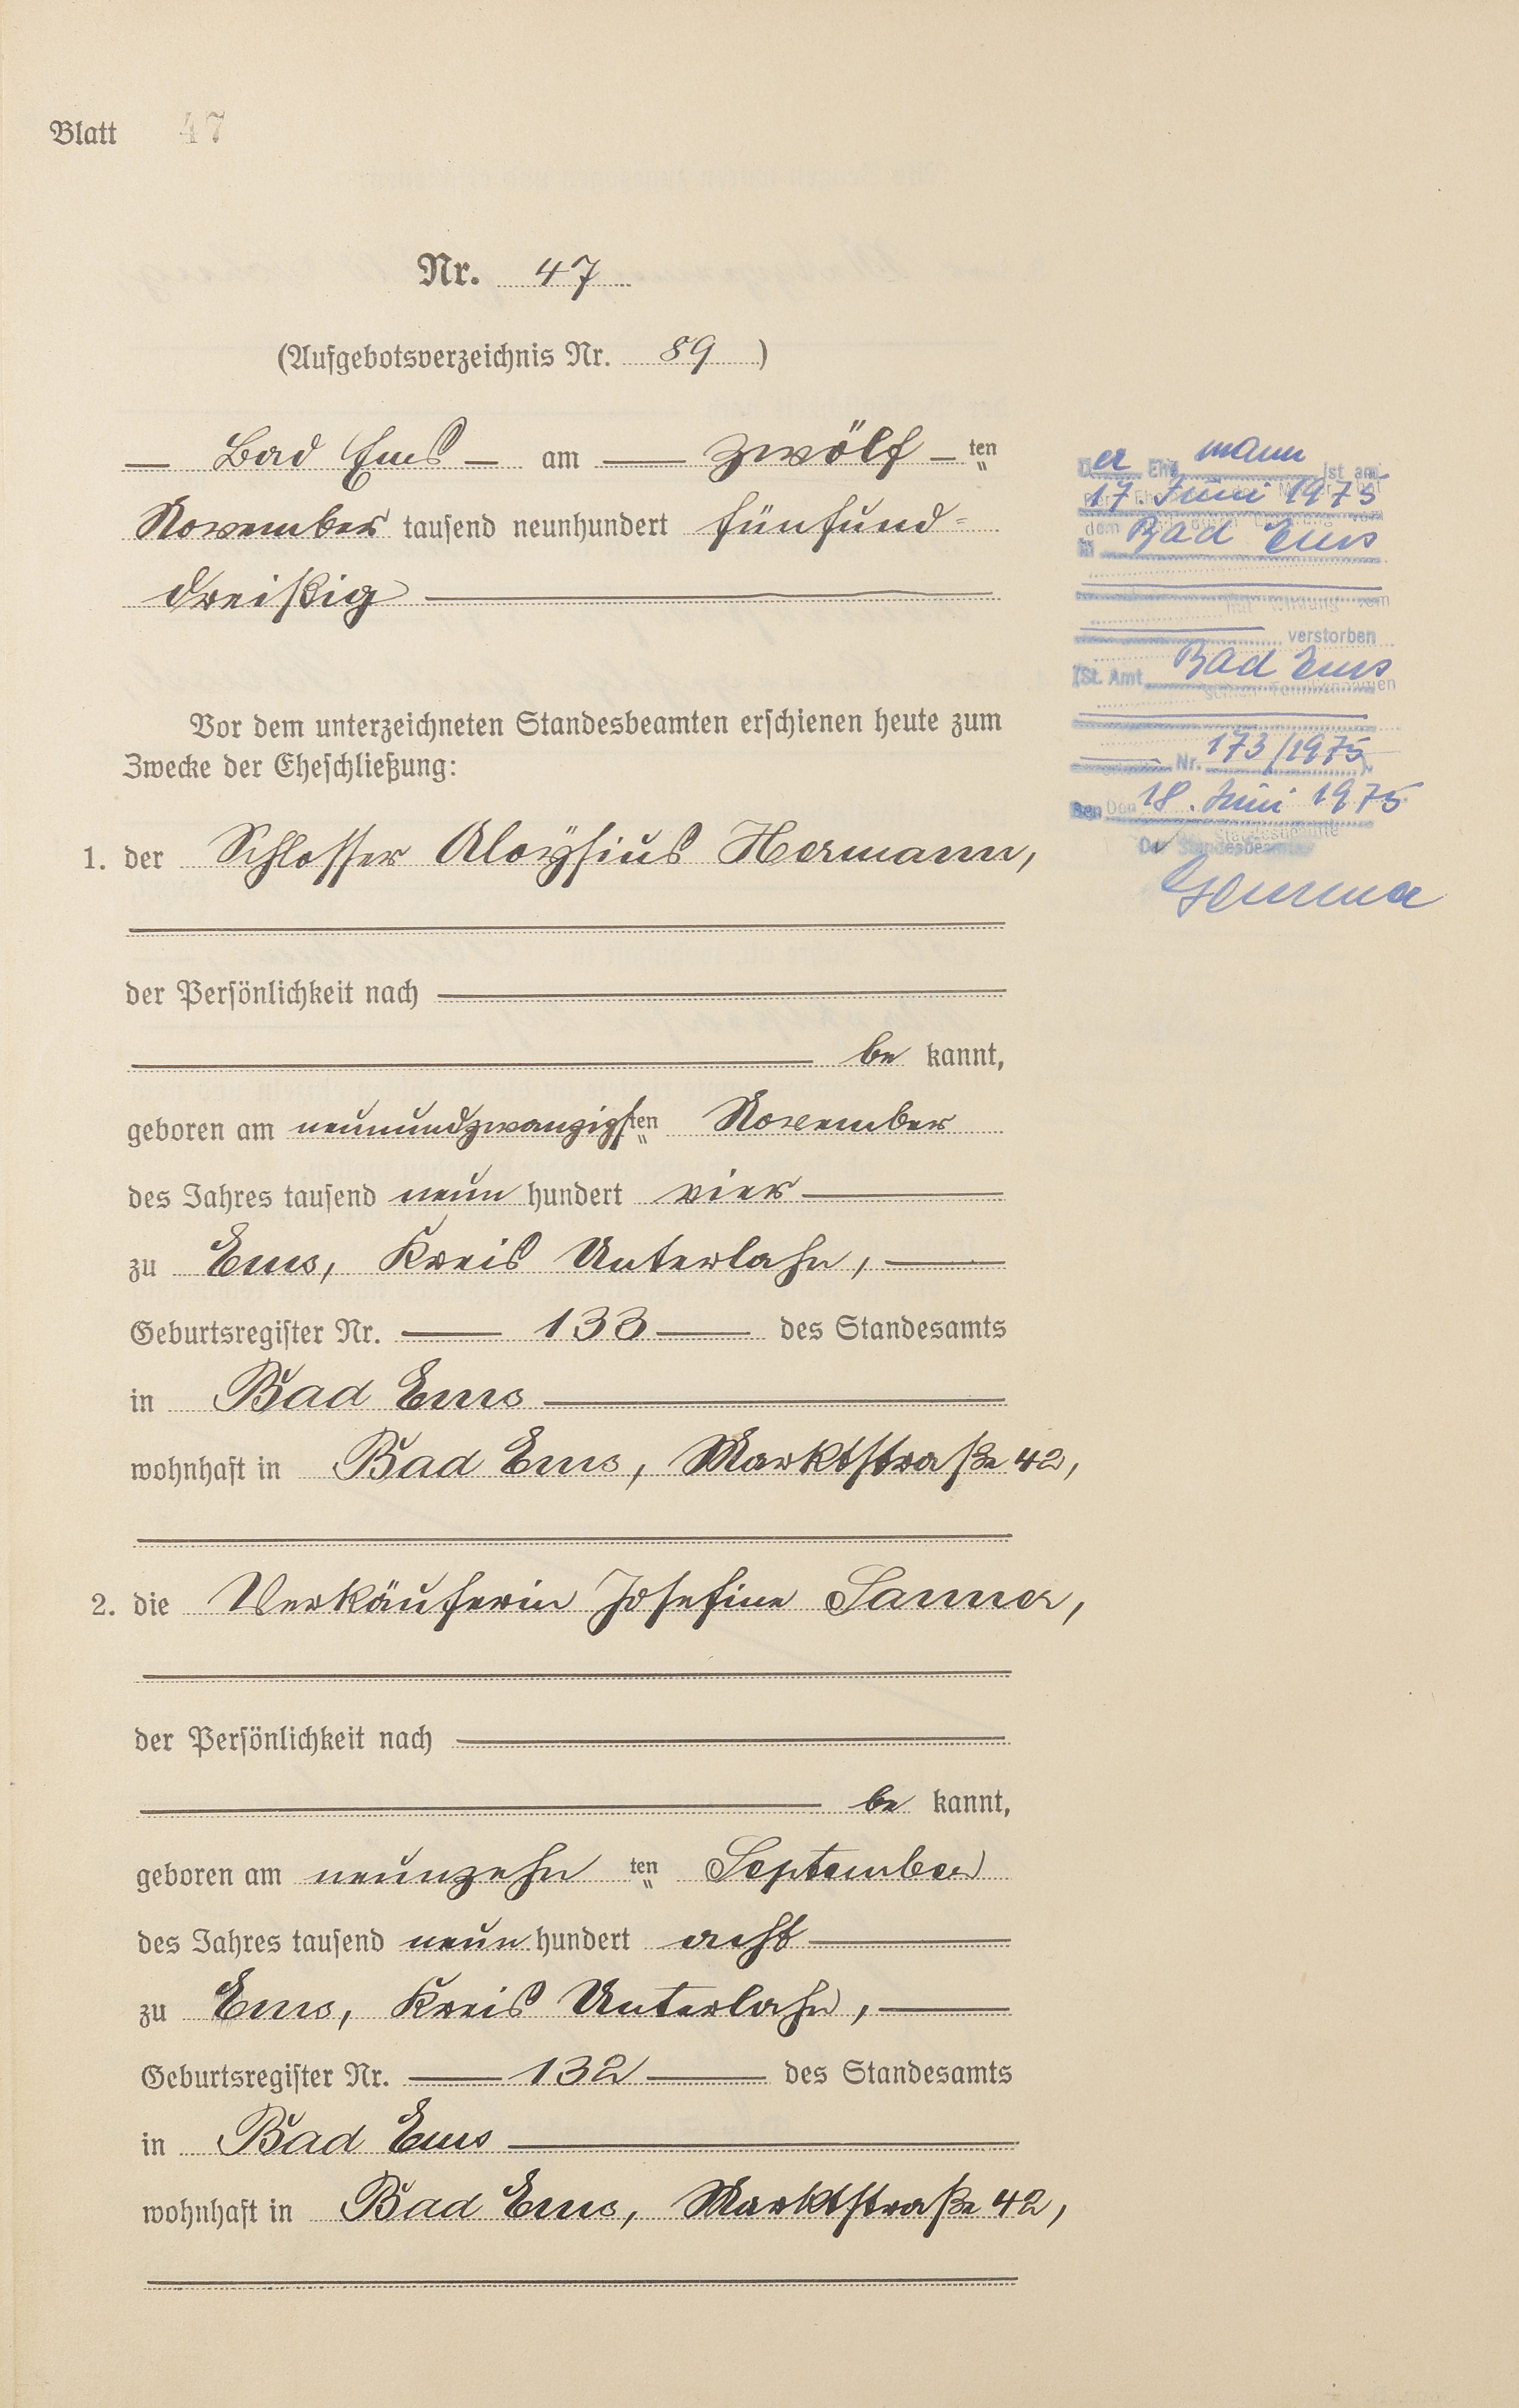 Blatt 47
Nr. 47
(Aufgebotsverzeichnis Nr. 89 )
Bad Ems am zwölf ten
November tausend neunhundert fünfund-
dreißig
Vor dem unterzeichneten Standesbeamten erschienen heute zum
Zwecke der Eheschließung:
1. der Schlosser Aloysius Hermann,
der Persönlichkeit nach
be kannt,
geboren am neunundzwanzigsten November
des Jahres tausend neun hundert vier
zu Ems, Kreis Unterlahn,
Geburtsregister Nr. 133 des Standesamts
in Bad Ems
wohnhaft in Bad Ems, Marktstraße 42,
2. die Verkäuferin Josefine Sanner,
der Persönlichkeit nach
be kannt,
geboren am neunzehn ten September
des Jahres tausend neun hundert acht
zu Ems, Kreis Unterlahn,
Geburtsregister Nr. 132 des Standesamts
in Bad Ems
wohnhaft in Bad Ems, Marktstraße 42,
Der Ehemann ist am
17. Juni 1975
in Bad Ems
verstorben
(St. Amt Bad Ems
Nr. 173/1975).
Den 18. Juni 1975
Der Standesbeamte